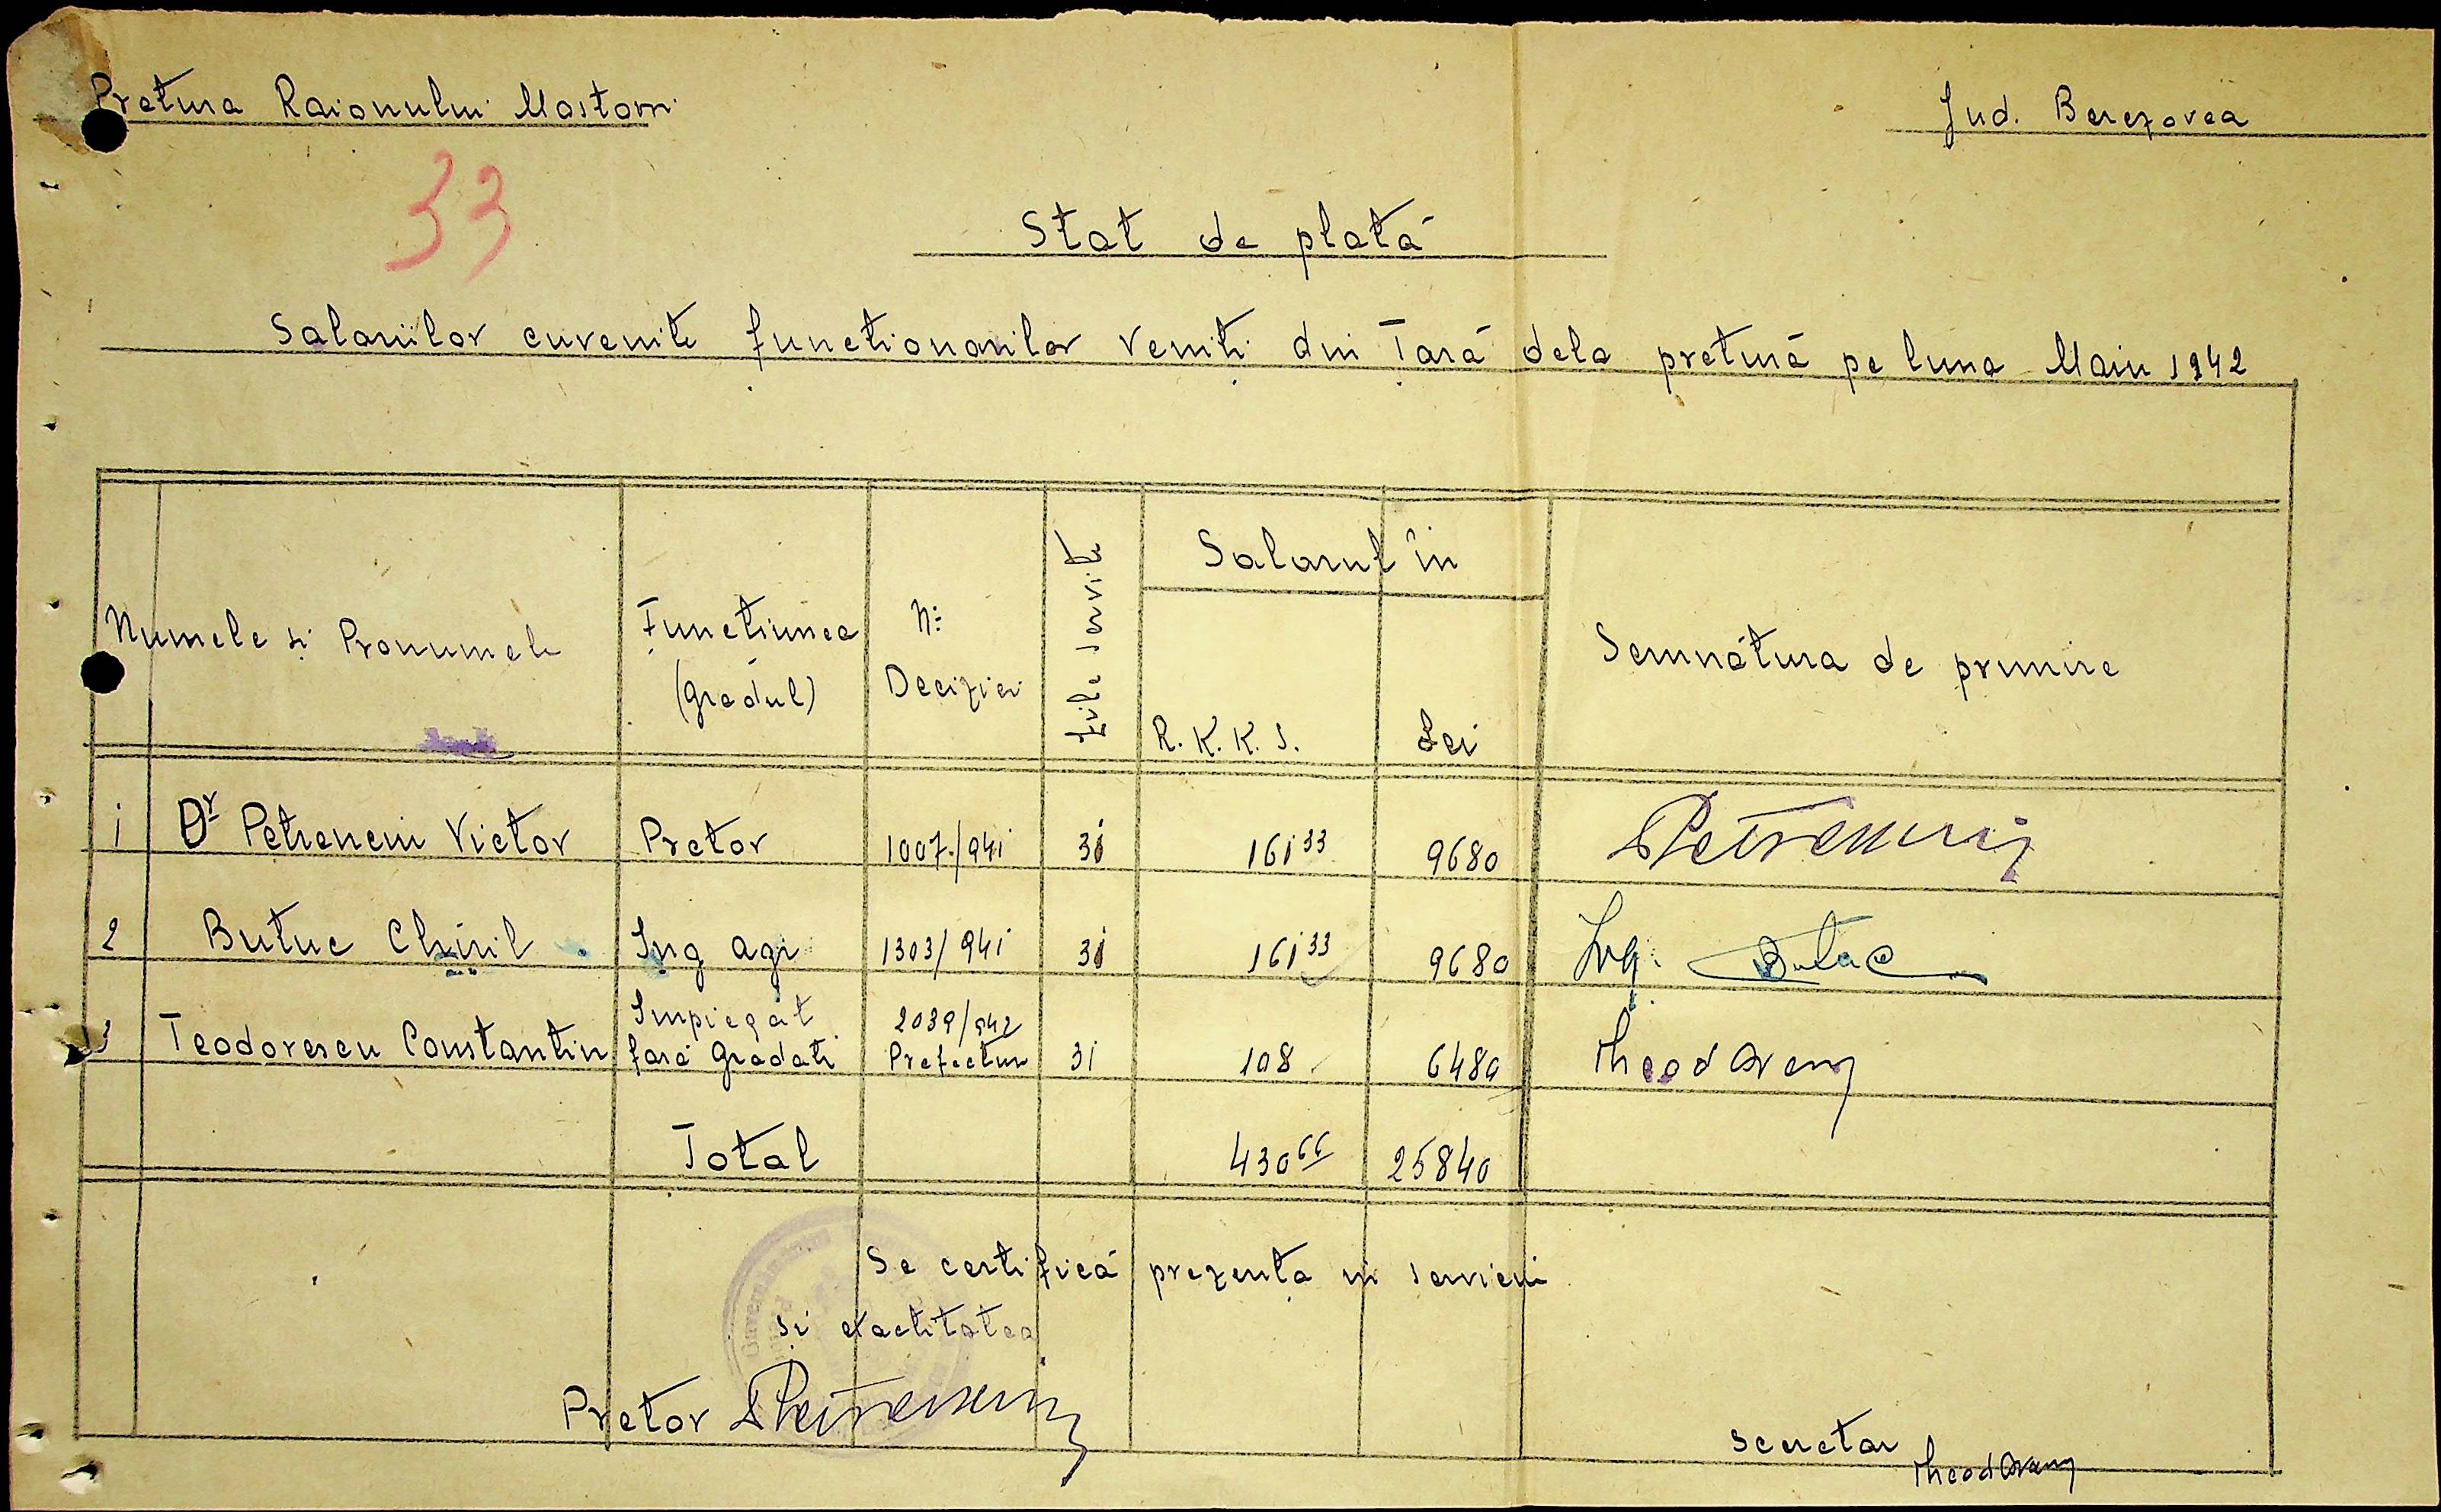 Pretura Raionului Mostovoi
Jud. Berezovca
33
Stat de plată
Salariilor cuvenite funcționarilor veniți din Țară dela pretură pe luna Maiu 1942
Numele și Pronumele
Funcțiunea
(gradul)
№
Deciziei
Zile servite
Salarul în
R. K. K. S.
Lei
Semnătura de primire
1 Dr Petrenciu Victor Pretor 1007./941 31 161 33 9680
2 Butuc Chiril Ing agr 1303/941 31 161 33 9680 Ing. Butuc
3 Teodorescu Constantin Impiegat fară gradați 2039/942 Prefectura 31 108 6480
Total 430 66 25840
Se certifică prezența in serviciu
și exactitatea
Pretor
Secretar